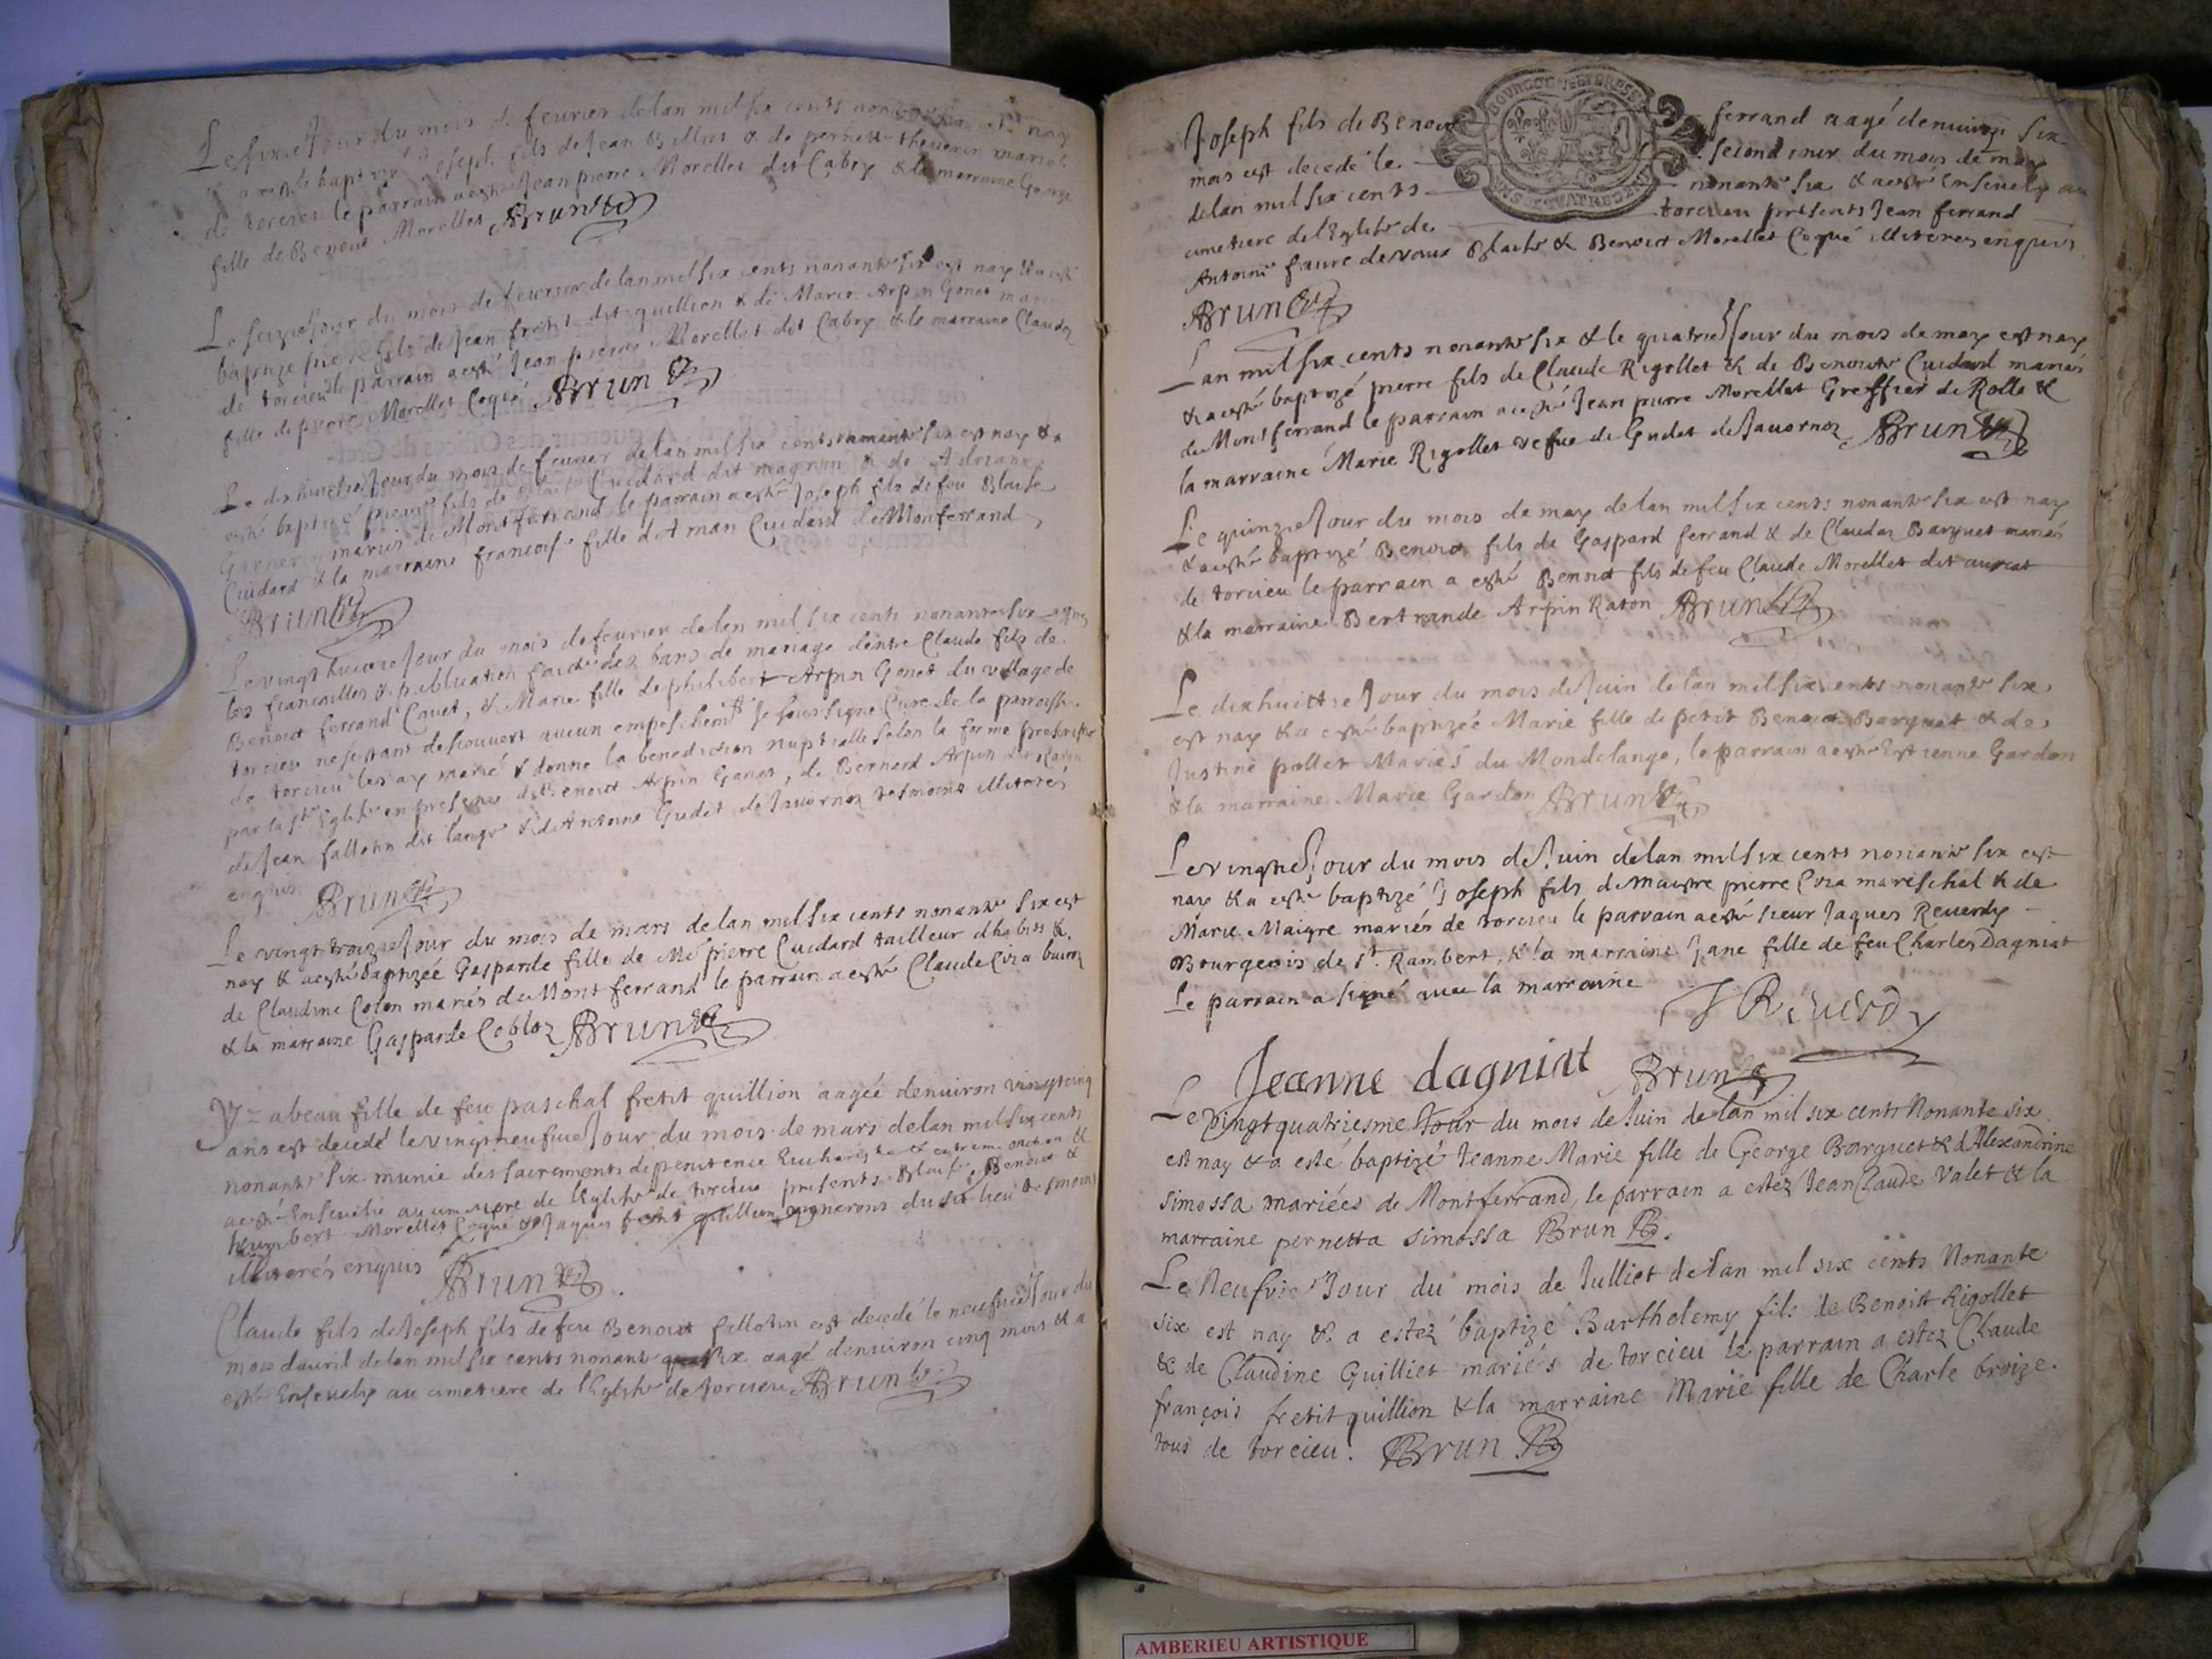 Le sixie Jour du mois de feuvrier de lan mil six cents nonante six est nay
a esté baptizé Joseph fils de Jean Billiet & de pernette theuenin mariés
de torcieu le parrain a esté Jean pierre Morellet dit Cabry & la marraine George
fille de Benoit Morellet Brun
Le seizie Jour du mois de feuvrier de lan mil six cents nonante six est nay & a esté
baptizé pierre fils de Jean fretit dit quillion & de Marie Arpin Gonet mariés
de torcieu le parrain a esté Jean pierre Morellet dit Cabry & la marraine Claudaz
fille de pierre Morellet Coqué Brun
Le dixhuictie Jour du mois de feuvrier de lan mil six cents nonante six est nay & a
esté baptizé pierre fils de Cuidard dit magnin & de Adriane
Garnier mariés de Montferrand le parrain a esté Joseph fils de feu Blaise
Cuidard & la marraine francoise fille d'Aman Cuidard de Monferrand
Brun
Le vingt huictie Jour du mois de feuvrier de lan mil six cents nonante six apres
les fiancailles & publication faicte des bans de mariage dentre Claude fils de
Benoit ferrand Cauet, & Marie fille de philibert Arpin Gonet du village de
torcieu ne sestant descouvert aucun empeschemt Je soussigné Curé de la parroisse
de torcieu les ay marié & donné la benediction nuptialle selon la forme prescripte
par la ste Eglise en presence de benoit Arpin Gonet, de Bernard Arpin dit Raton
de Jean fallotin dit lange & de Antoine Gudet de Jauornoz tesmoins illiterés
enquis Brun
Le vingt troizie Jour du mois de mars de lan mil six cents nonante six est
nay & a esté baptizée Gasparde fille de Me pierre Cuidard tailleur dhabits &
de Claudine Colon mariés de Montferrand le parrain a esté Claude
& la marraine Gasparde Cobloz Brun
Yzabeau fille de feu paschal fretit quillion aagée denuiron vingtcinq
ans est decedé le vingtneufuie Jour du mois de mars de lan mil six cents
nonante six munie des sacrements de penitence Eucharistie & extreme onction &
a esté Ensevelie au cimetiere de leglise de torcieu presents Blaise, Benoict &
humbert Morellet Coqué & Jaques fretit quillion vignerons dudit lieu tesmoins
illiterés enquis Brun
Claude fils de Joseph fils de feu Benoict fallotin est decedé le neufuie Jour du
mois dauril de lan mil six cents nonante six aagé denuiron cinq mois & a
esté Ensevely au cimetiere de l'Eglise de torcieu Brun
Joseph fils de Benoit ferrand aagé denuiron six
mois est decedé le second iour du mois de may
de lan mil six cents nonante six & a esté Ensevely au
cimetiere de l'Eglise de torcieu presents Jean ferrand
Antoine faure de vaux Blaise & Benoict Morellet Coqué illiteres enquis
Brun
Lan mil six cents nonante six & le quatrie Jour du mois de may est nay
& a esté baptizé pierre fils de Claude Rigollet & de Benoite Cuidard mariés
de Montferrand le parrain a esté Jean pierre Morellet Greffier de Rolle &
la marraine Marie Rigollet vefue de Gudet de Jauornoz Brun
Le quinzie Jour du mois de may de lan mil six cents nonante six est nay
& a esté baptizé Benoict fils de Gaspard ferrand & de Claudaz Barguet mariés
de torcieu le parrain a esté Benoit fils de feu Claude Morellet dit
& la marraine Bertrande Arpin Raton Brun
Le dixhuittie Jour du mois de Juin de lan mil six cents nonante six
est nay & a esté baptizée Marie fille de petit Benoit Barguet & de
Justine pollet Mariés du Mondelange, le parrain a esté Estienne Gardon
& la marraine Marie Gardon Brun
Le vingtie Jour du mois de Juin de lan mil six cents nonante six est
nay & a esté baptizé Joseph fils de Maistre pierre mareschal & de
Marie Maigre mariés de torcieu le parrain a esté sieur Jaques Reuerdy
Bourgeois de st. Rambert, & la marraine Jane fille de feu Charles Dagniat
Le parrain a signé avec la marraine
J Reuerdy
Jeanne dagniat Brun
Le Vingtquatriesme Jour du mois de Juin de lan mil six cents Nonante six
est nay & a esté baptizé Jeanne Marie fille de George Barguet & d'Alexandrine
simossa mariées de Montferrand, le parrain a estez Jean Claude Valet & la
marraine pernetta simossa Brun
Le Neufvie Jour du mois de Julliet de lan mil six cents Nonante
six est nay & a estez baptizé Barthelemy fils de Benoist Rigollet
& de Claudine Guilliet mariés de torcieu le parrain a estez Claude
françois fretit quillion & la marraine Marie fille de Charle broize.
tous de torcieu. Brun
AMBERIEU ARTISTIQUE